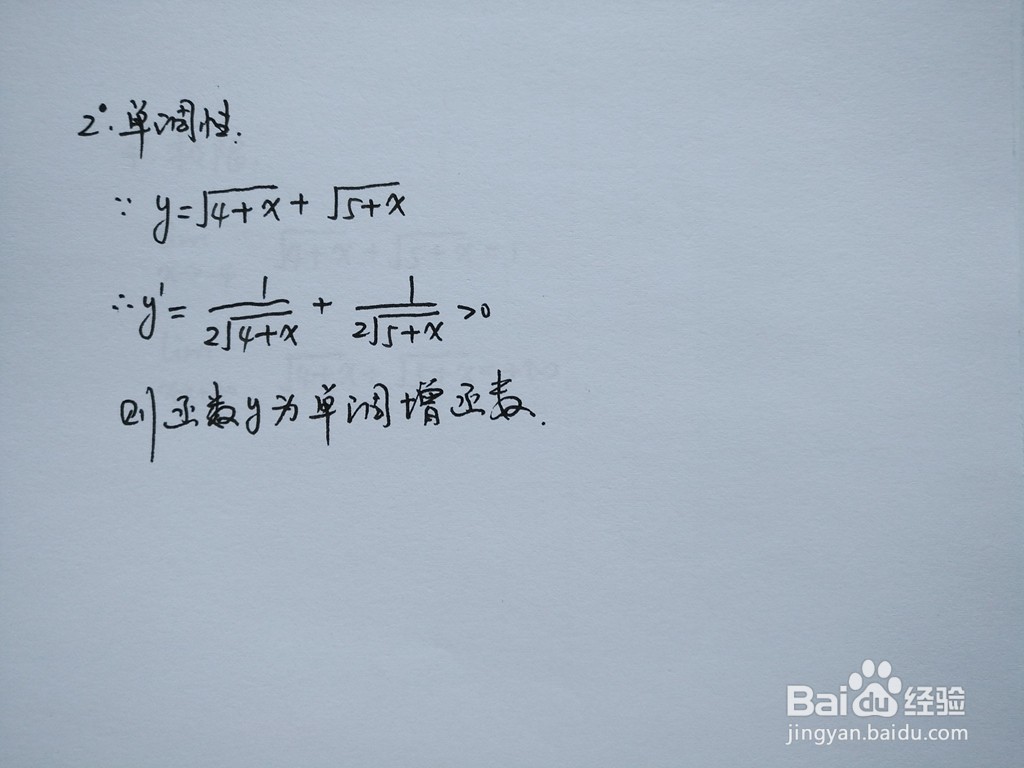 2°.单调性.
∵ y=√4+x + √5+x
∴y'= 1/2√4+x + 1/2√5+x >0
则函数y为单调增函数.
Baidu经验
jingyan.baidu.com